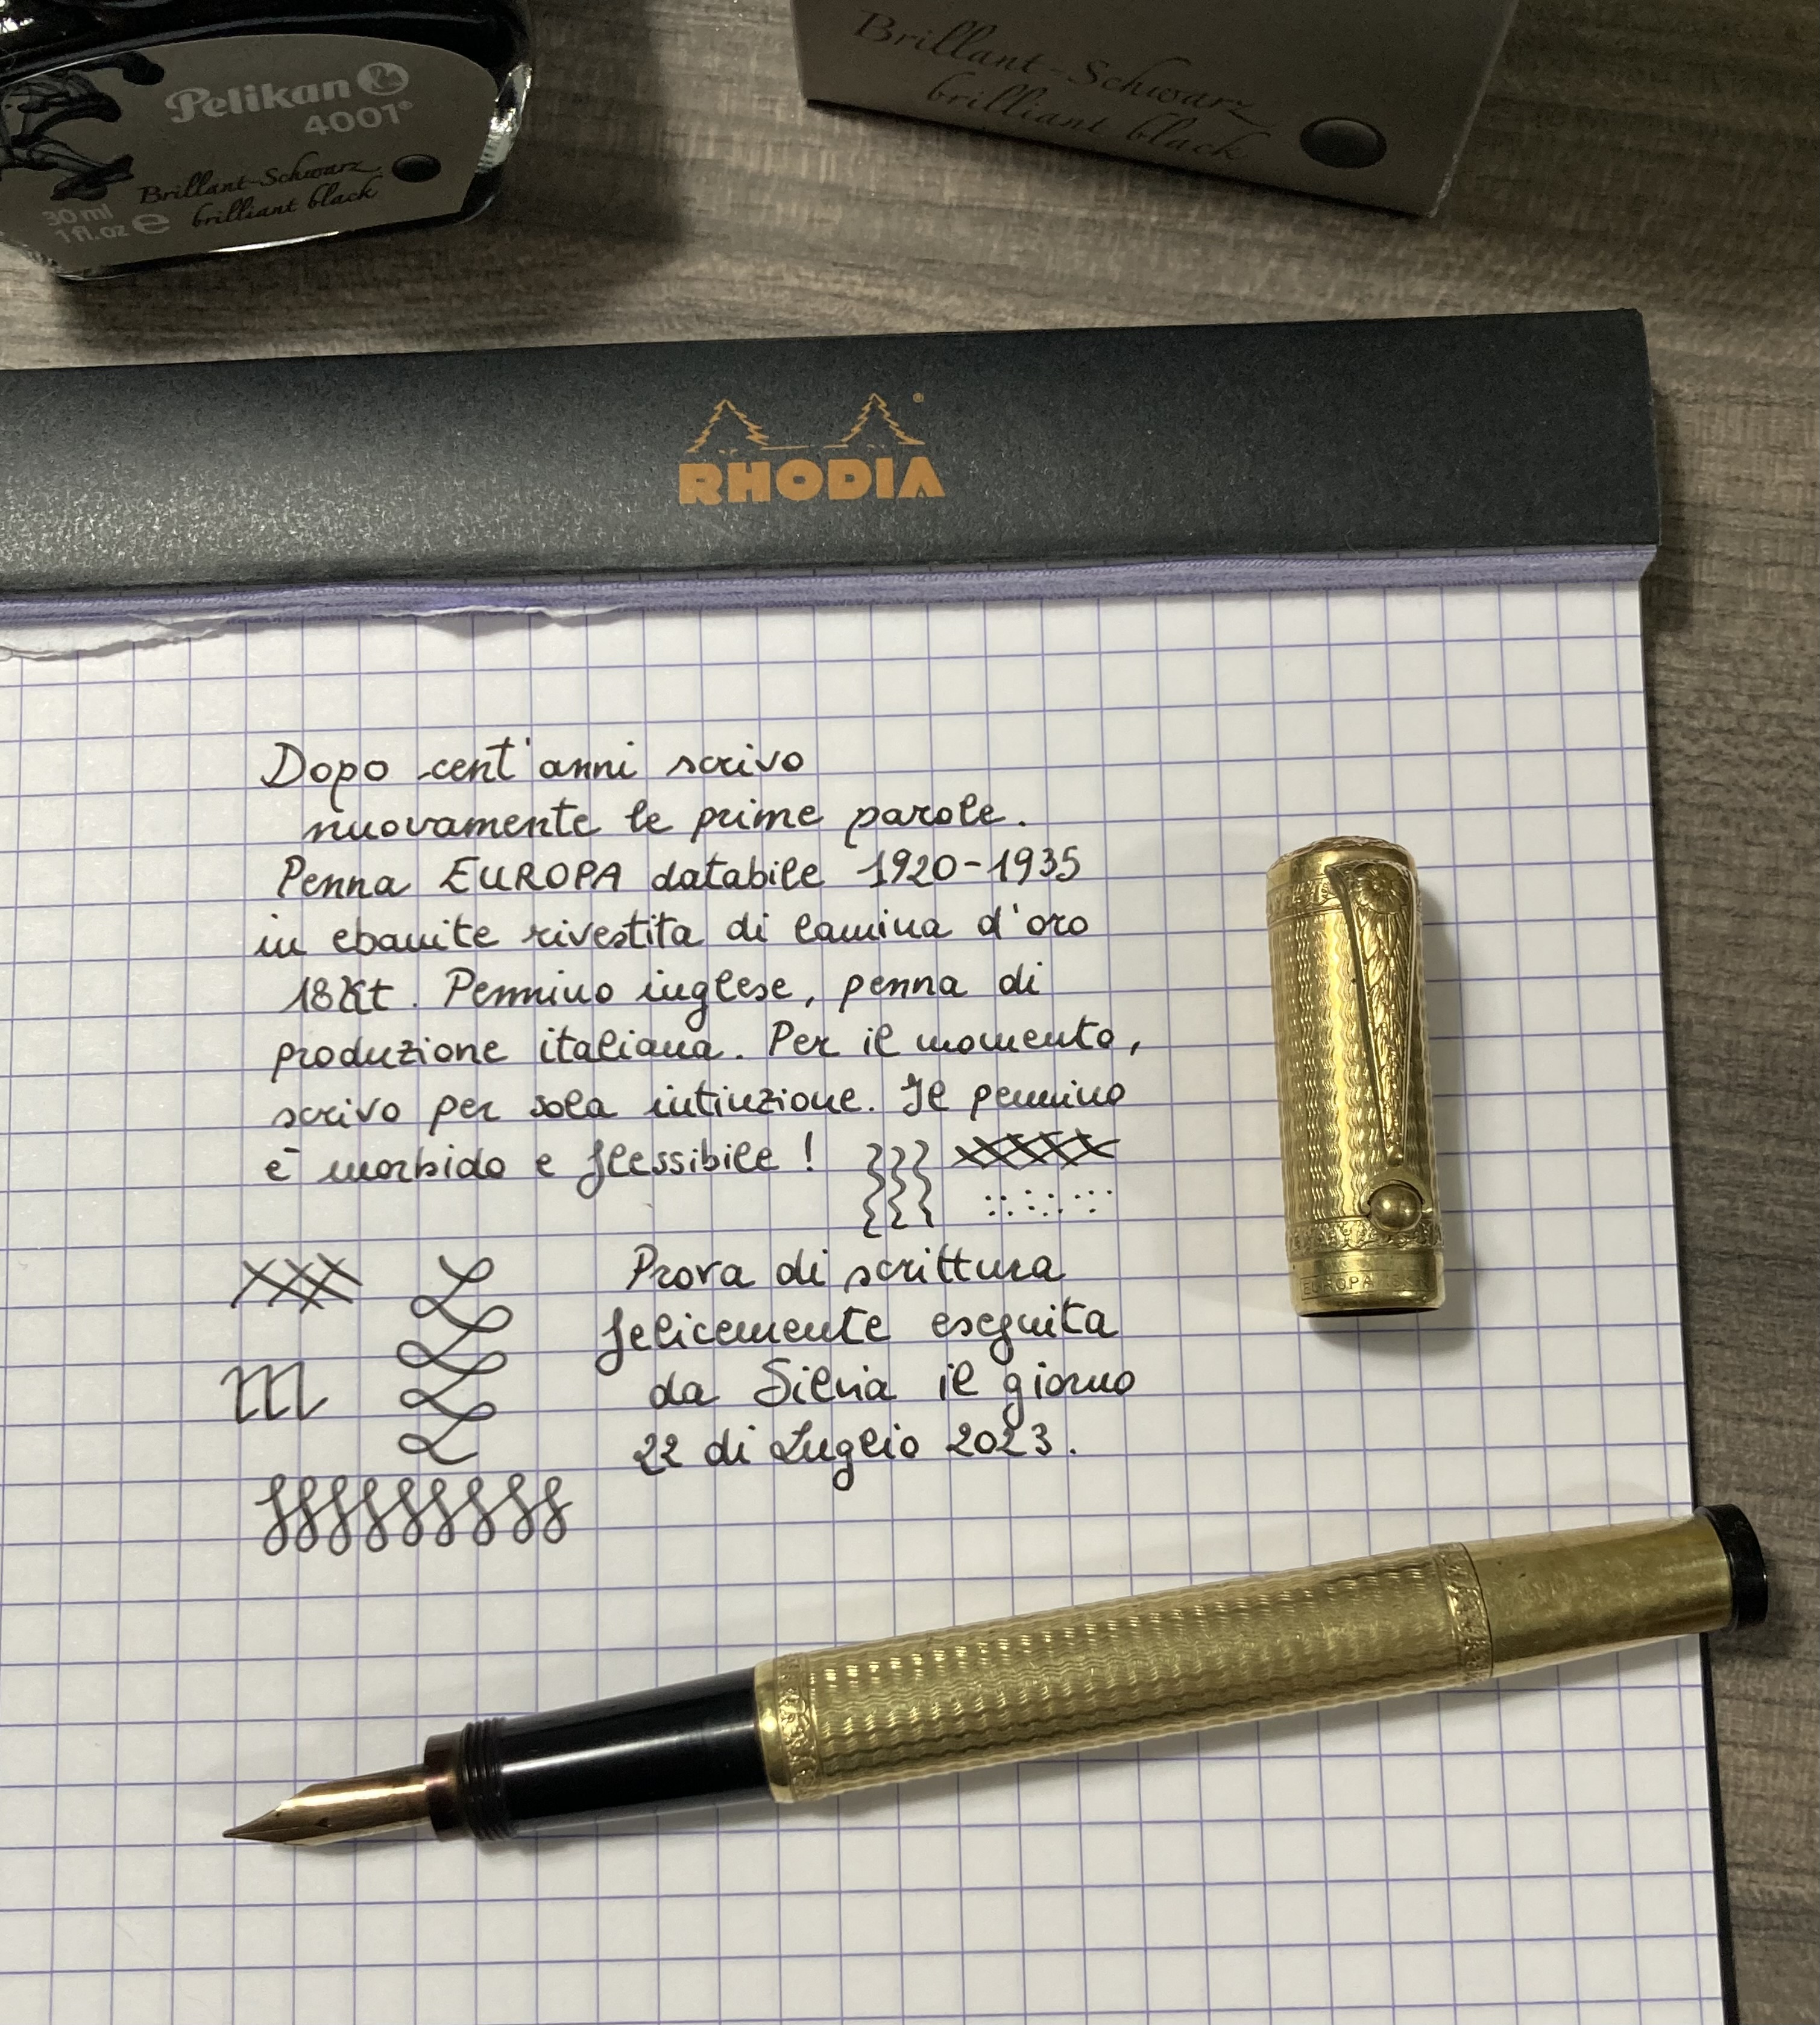 Pelikan
4001®
Brillant-Schwarz
brilliant black
30 ml
1 fl.oz e
Brillant-Schwarz
brilliant black
RHODIA®
Dopo cent'anni scrivo
nuovamente le prime parole.
Penna EUROPA databile 1920-1935
in ebanite rivestita di lamina d'oro
18Kt. Pennino inglese, penna di
produzione italiana. Per il momento,
scrivo per sola intiuzione. Il pennino
è morbido e flessibile!
Prova di scrittura
felicemente eseguita
da Silvia il giorno
22 di Luglio 2023.
EUROPA